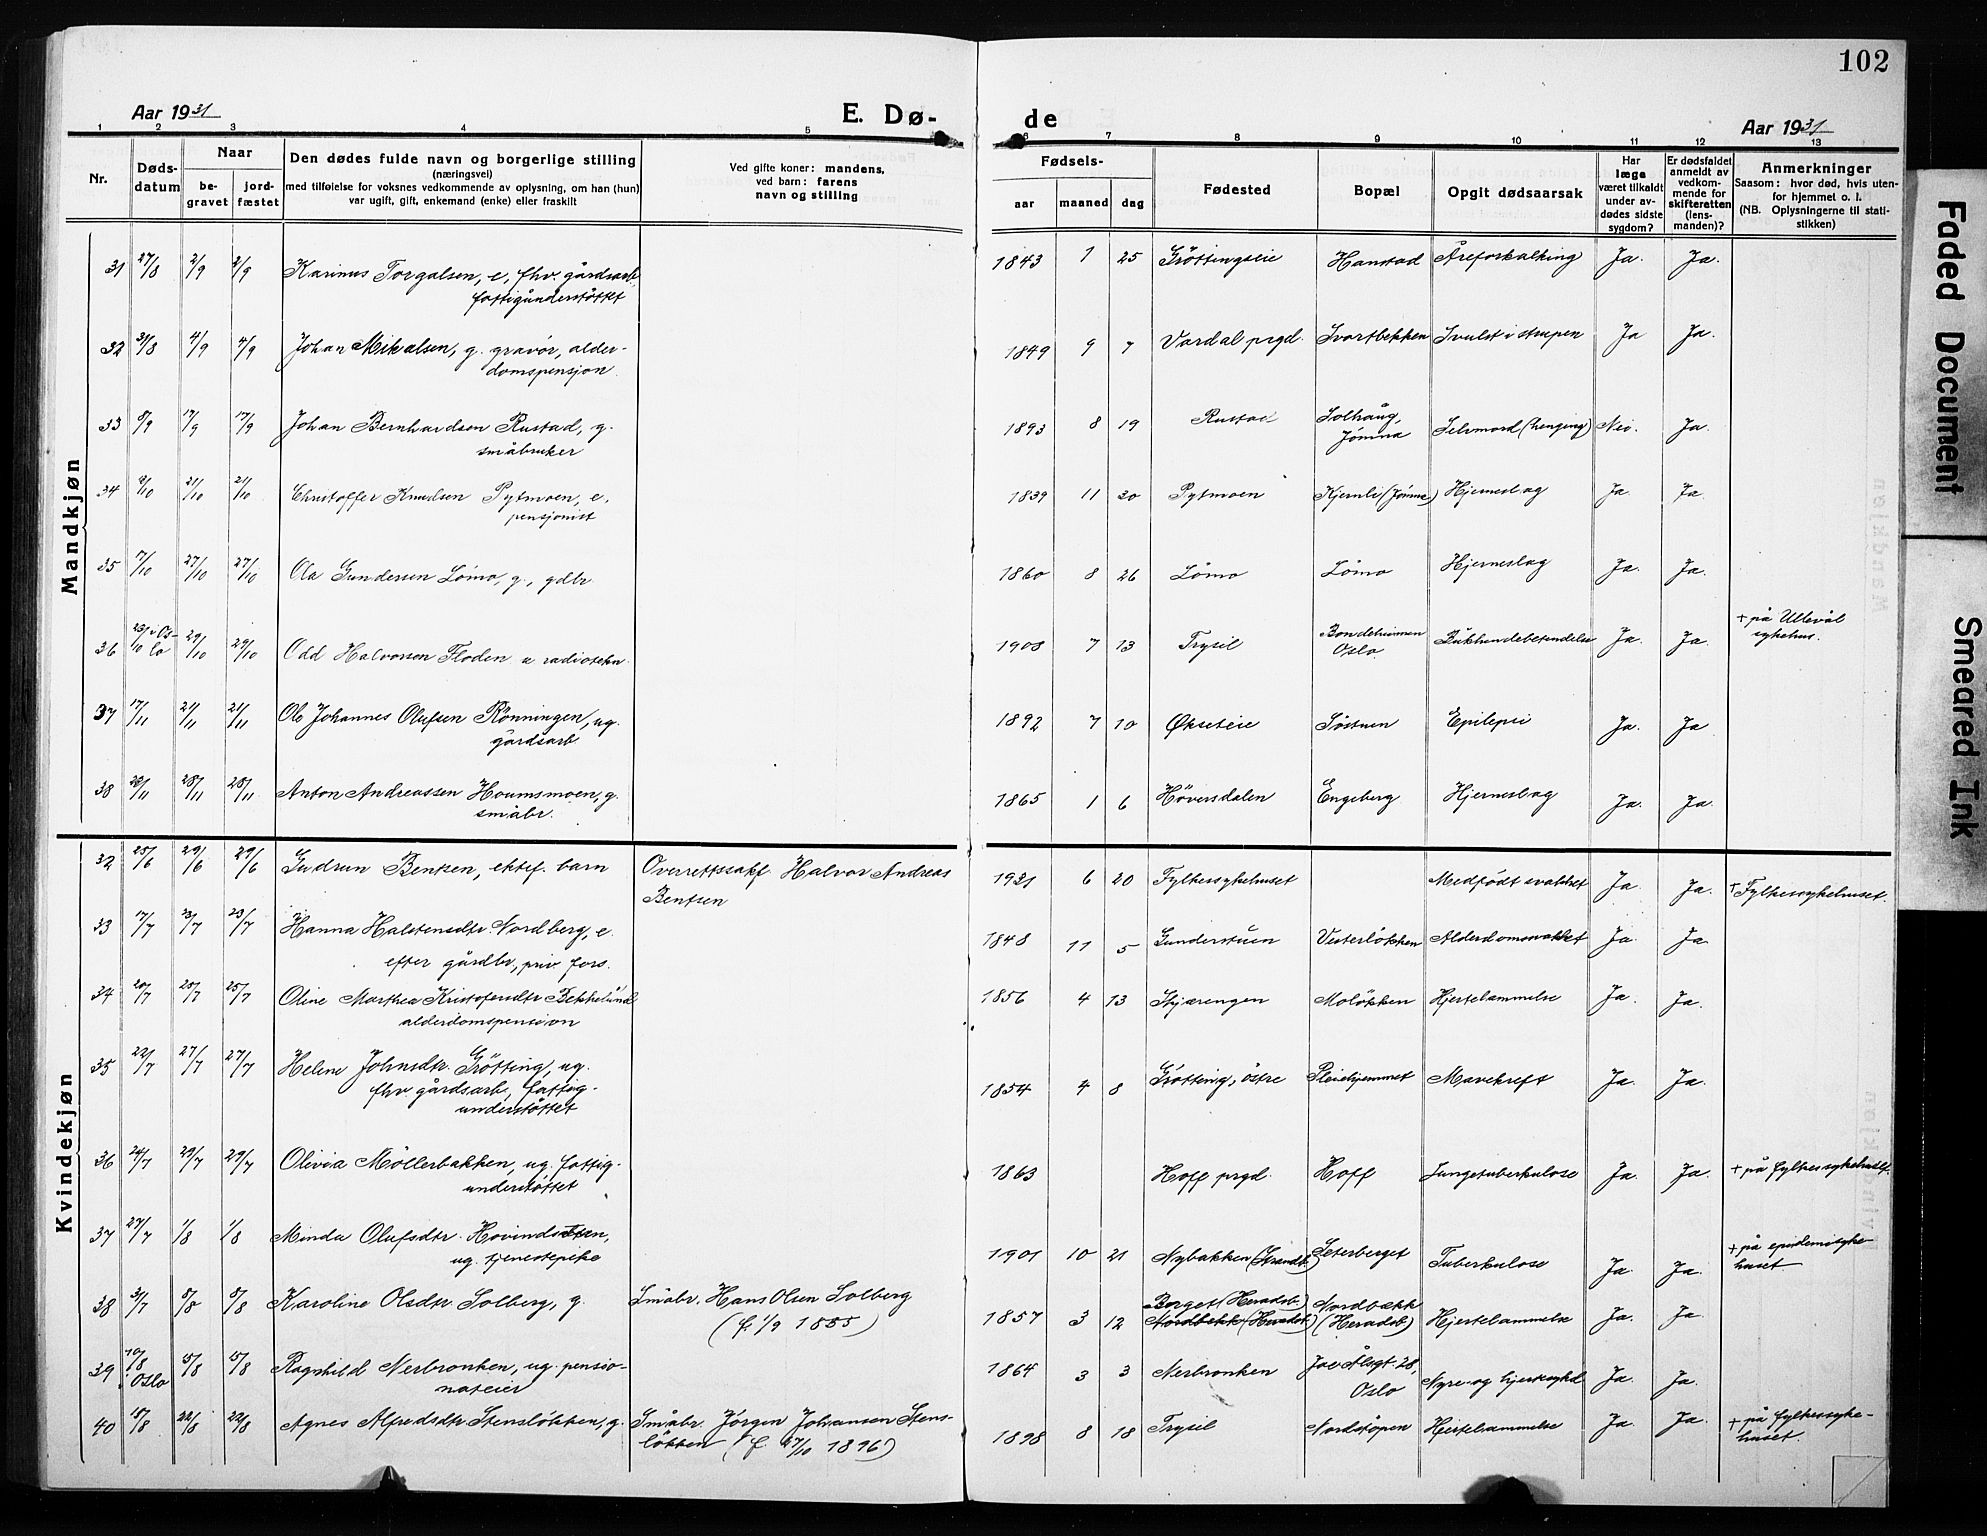 102
Aar 1931
E. Dø-
de
Aar 1931
1 2 3 4 5 6 7 8 9 10 11 12 13
Nr.
Døds-
datum
Naar
be-
gravet
jord-
fæstet
Den dødes fulde navn og borgerlige stilling
(næringsvei)
med tilføielse for voksnes vedkommende av oplysning, om han (hun)
var ugift, gift, enkemand (enke) eller fraskilt
Ved gifte koner: mandens,
ved barn: farens
navn og stilling
Fødsels-
aar maaned dag
Fødested
Bopæl
Opgit dødsaarsak
Har
læge
været tilkaldt
under av-
dødes sidste
sygdom?
Er dødsfaldet
anmeldt av
vedkom-
mende for
skifteretten
(lens-
manden)?
Anmerkninger
Saasom: hvor død, hvis uten-
for hjemmet o. l.
(NB. Oplysningerne til stati-
stikken)
Mandkjøn
31 27/8 2/9 2/9 Karinus Torgalsen, e, fhv. gårdsarb. 1843 1 25 Grøttingseie Hanstad Åreforkalking Ja. Ja.
fattigunderstøttet
32 31/8 4/9 4/9 Johan Mikalsen, g. gravør, alder- 1849 9 7 Vardal prgd. Svartbekken Svulst i strupen Ja Ja.
domspensjon.
33 8/9 17/9 17/9 Johan Bernhardsen Rustad, g. 1893 8 19 Rustad Solhaug, Selvmord (henging) Nei. Ja.
småbruker Jømna
34 2/10 21/10 21/10 Christoffer Knudsen Pytmoen, e, 1839 11 20 Pytmoen Kjernli (Jømna) Hjerneslag Ja. Ja.
pensjonist
35 7/10 27/10 27/10 Ola Gundersen Lømo, g., gdbr 1860 8 26 Lømo Lømo Hjerneslag Ja. Ja.
36 23/10 i Os-lo 29/10 29/10 Odd Halvorsen Floden u radiotekn. 1908 7 13 Trysil Bondeheimen Bukhindebetendelse Ja. Ja. + på Ullevål
Oslo. sykehus.
37 17/11 21/11 21/11 Ole Johannes Olufsen Rønningen, ug. 1892 7 10 Økseteie Søstuen Epilepsi Ja. Ja
gårdsarb.
38 28/11 28/11 Anton Andreassen Houmsmoen, g. 1865 1 6 Høversdalen Engeberg Hjerneslag Ja. Ja.
småbr.
Kvindekjøn
32 25/6 29/6 29/6 Gudrun Bentsen, ektef. barn Overrettssakf. Halvor Andreas 1931 6 20 Fylkessykehuset Medfødt svakhet Ja. Ja. + Fylkessykehuset.
Bentsen
33 17/7 23/7 23/7 Hanna Halstensdtr. Nordberg, e. 1848 11 5 Gunderstuen Vesterløkken Alderdomssvakhet Ja. Ja
efter gårdbr., priv. fors.
34 20/7 25/7 25/7 Oline Marthea Kristofersdtr Bekkelund 1856 4 13 Skjærengen Moløkken Hjertelammelse Ja. Ja.
alderdomspension
35 22/7 27/7 27/7 Helene Johnsdtr. Grøtting, ug. 1854 4 8 Grøtting, østre Pleiehjemmet Mavekreft Ja. Ja.
fhv. gårdsarb., fattig-
understøttet
36 24/7 29/7 29/7 Olivia Møllerbakken, ug. fattig- 1863 Hoff prgd. Hoff Lungetuberkulose Ja. Ja. + på fylkessykehuset.
understøttet
37 27/7 1/8 1/8 Minda Olufsdtr. 1901 10 21 Nybakken (Strandb.) Seterberget Tuberkulose Ja. Ja. + på epidemisyke-
ug. tjenestepike huset
38 31/7 5/8 5/8 Karoline Olsdtr Solberg, g. Småbr. Hans Olsen Solberg 1857 3 12 Berget (Heradsb.) Nordbekk Hjertelammelse Ja. Ja.
(f. 1/9 1855) Nordbekk (Heradsb.) (Heradsb)
39 10/8 i Oslo 15/8 15/8 Ragnhild Nerbronken, ug. pensio- 1864 3 3 Nerbronken Oslo Nyre- og hjertesykd Ja. Ja.
nateier
40 18/8 22/8 22/8 Agnes Alfredsdtr Stensløkken, g. Småbr. Jørgen Johansen Stens- 1898 8 18 Trysil Nordstøpen Hjertelammelse Ja. Ja. + på fylkessyke-
løkken (f. 27/10 1896) huset.
Faded Document
Smeared Ink